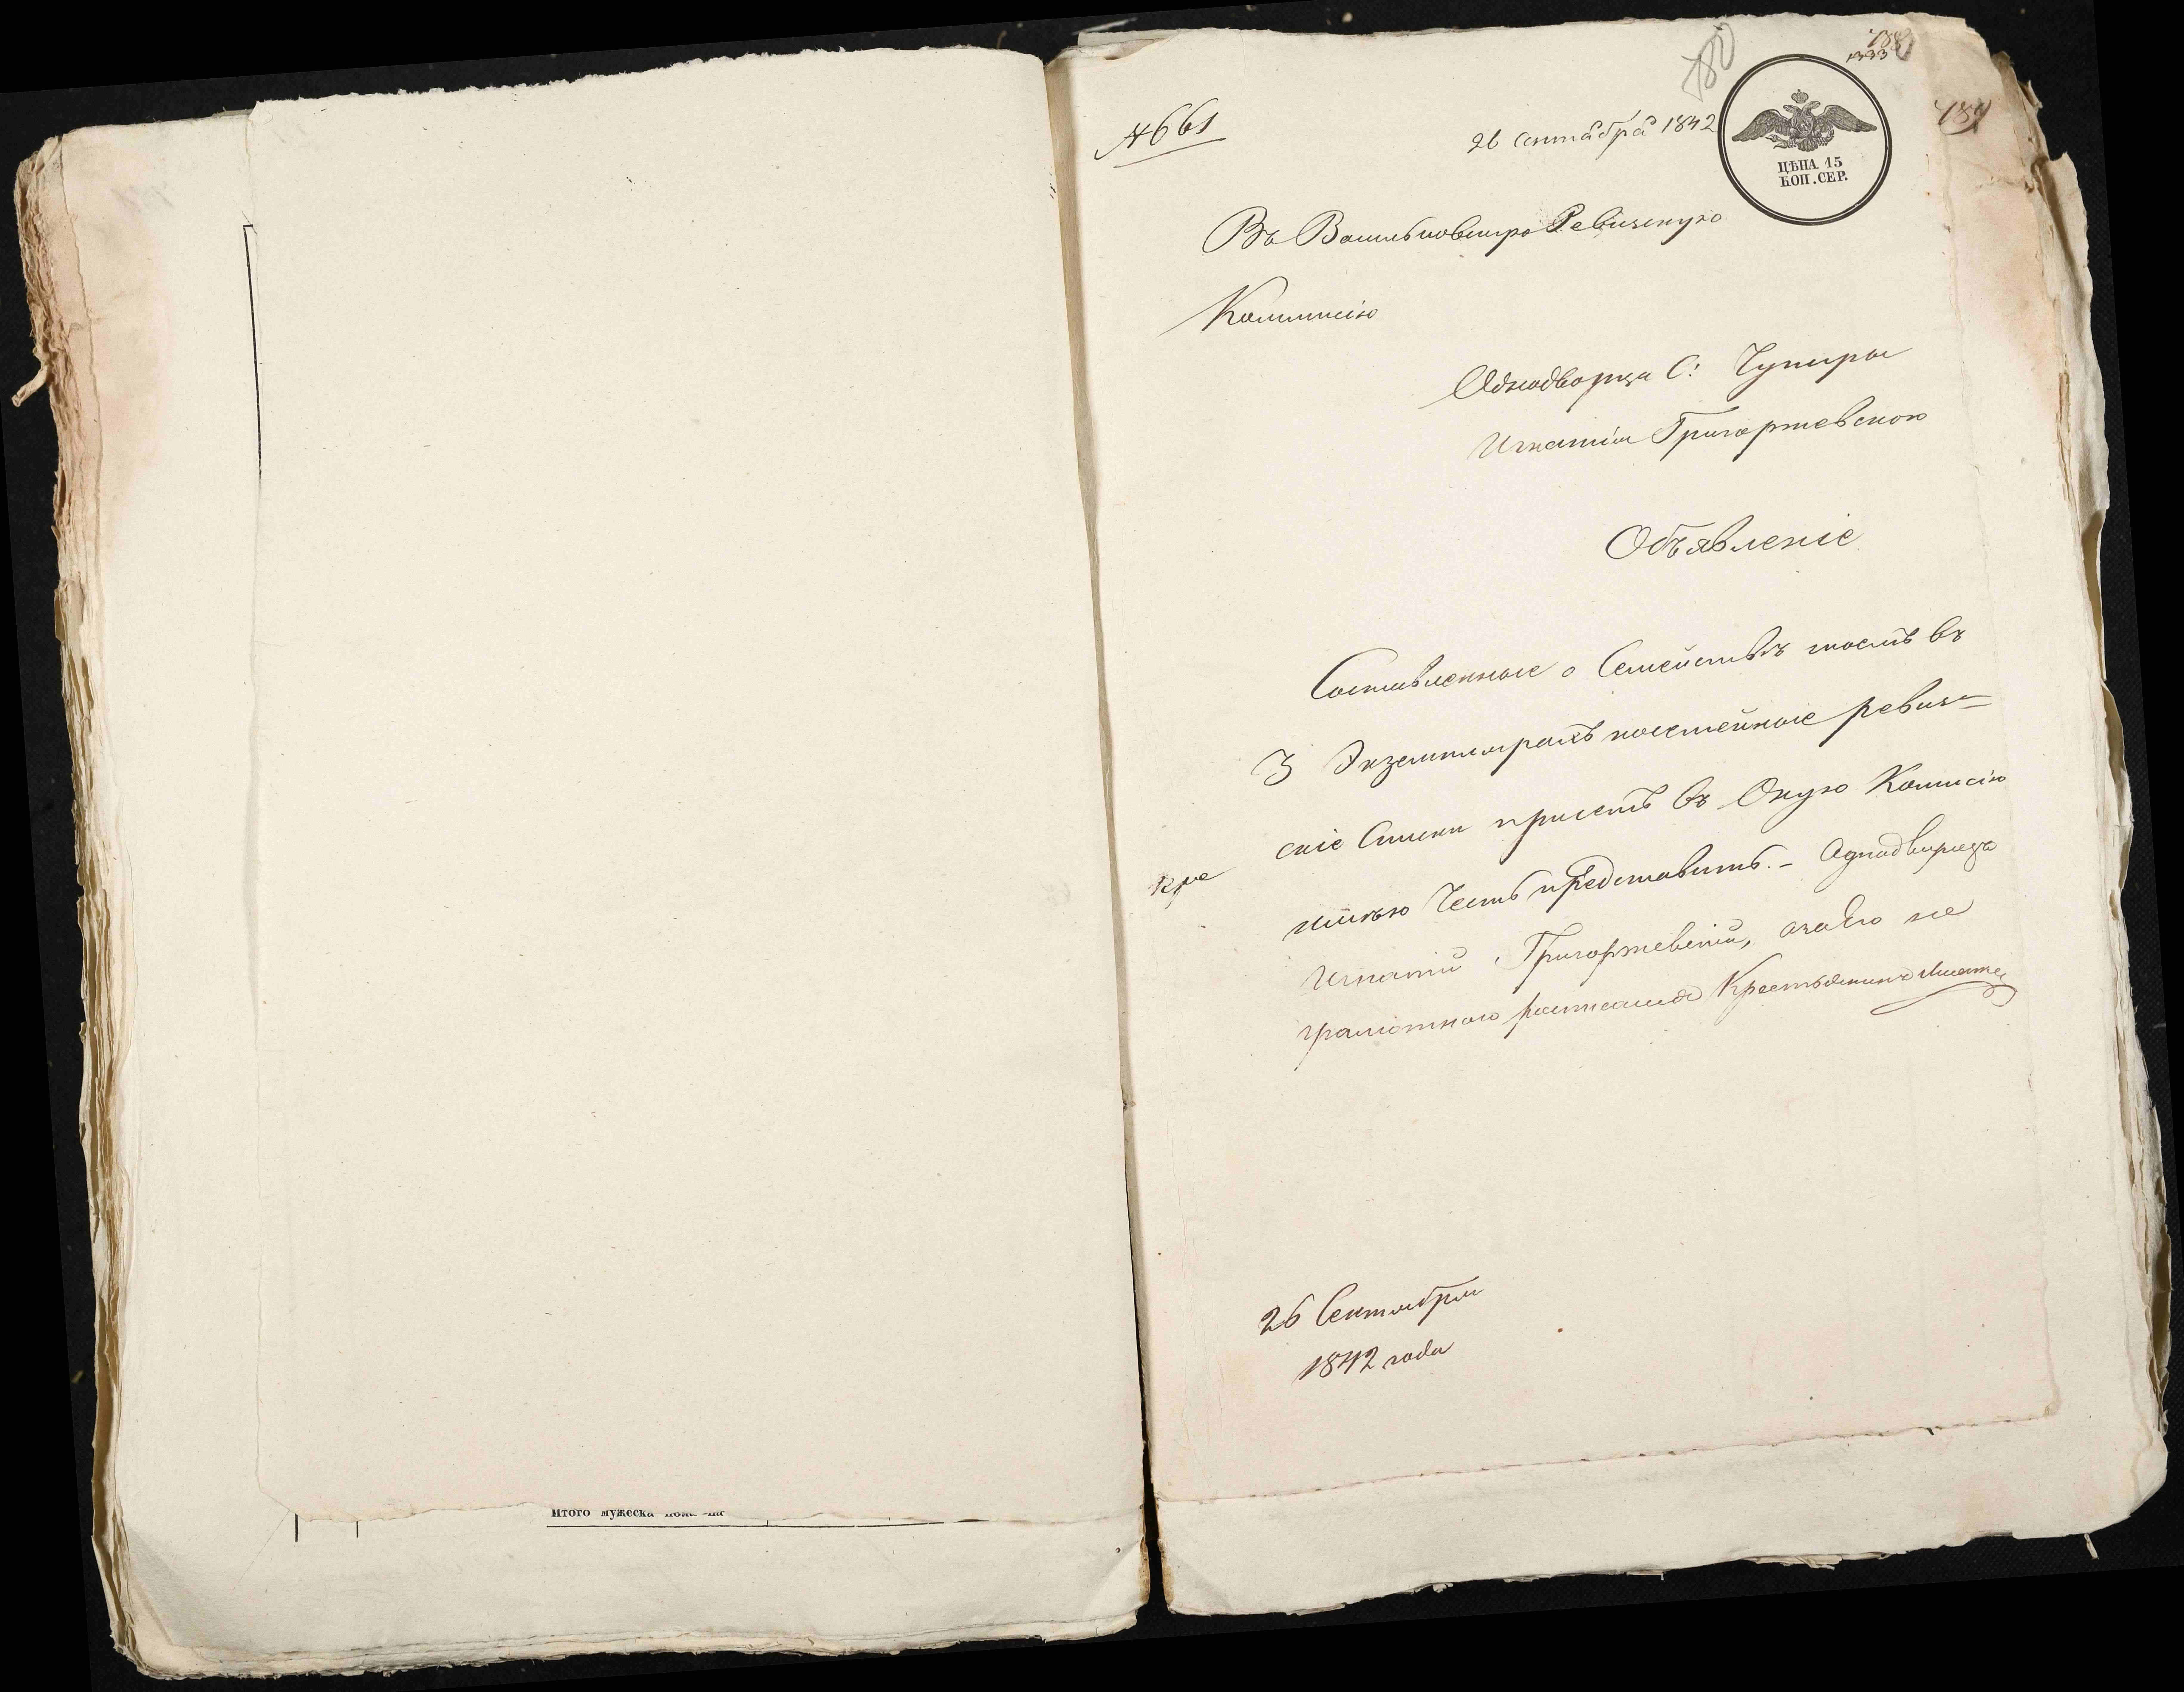 №661
26 Сентября 1842
ЦѢНА 15
КОП. СЕР.
Въ Васильковскую Ревизскую
Коммисію
Однодворца С: Чупиры
Игнатія Григоржевского
Объявленіе
Составленные о Семействѣ моемъ въ
3 Экземплярахъ посемейные ревиз=
скіе Списки присемъ въ Оную Комисію
имѣю Честь представить. – Аднодворецъ
Игнатій Григоржевскій, аза Его не
грамотного росписался Крестьянинъ
26 Сентября
1842 года
Итого мужеска